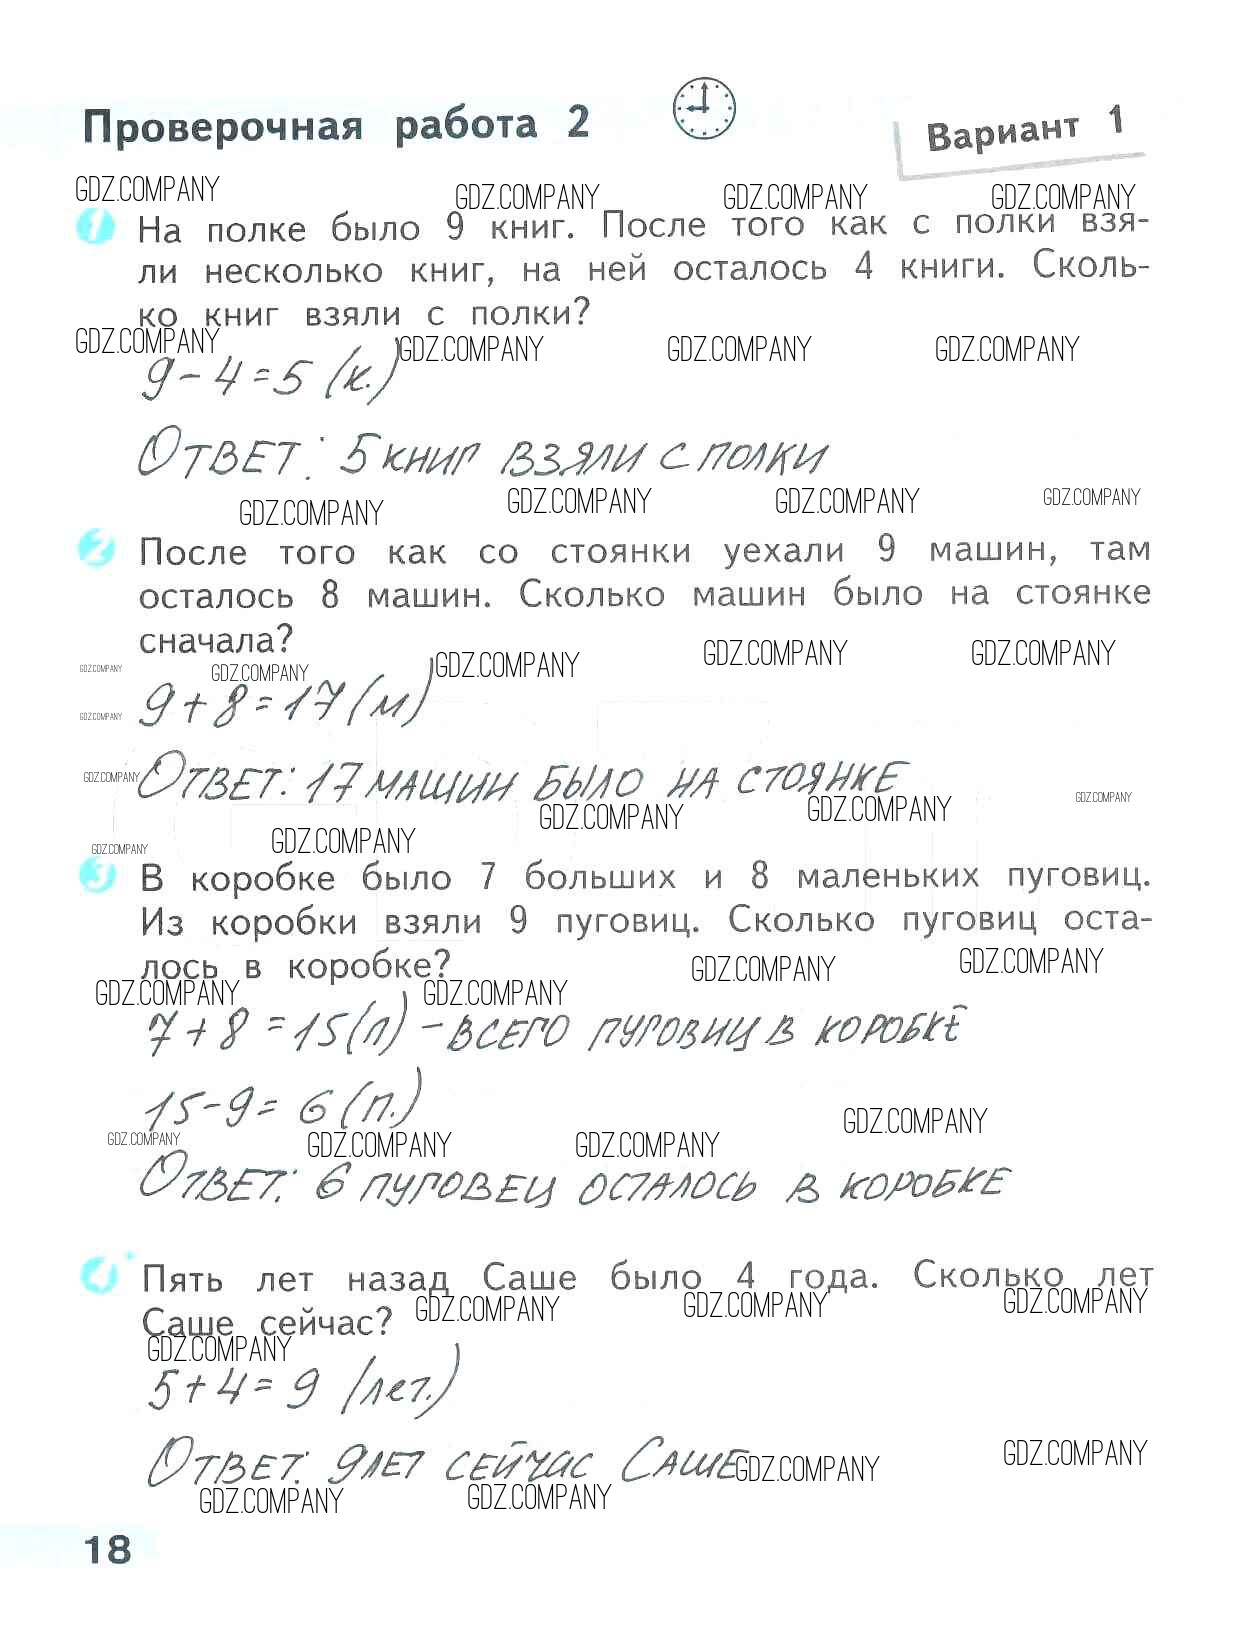 Проверочная работа 2
Вариант 1
GDZ.COMPANY GDZ.COMPANY GDZ.COMPANY GDZ.COMPANY
1 На полке было 9 книг. После того как с полки взя-
ли несколько книг, на ней осталось 4 книги. Сколь-
ко книг взяли с полки?
GDZ.COMPANY GDZ.COMPANY GDZ.COMPANY GDZ.COMPANY
9-4=5 (к.)
Ответ: 5 книг взяли с полки
GDZ.COMPANY GDZ.COMPANY GDZ.COMPANY GDZ.COMPANY
2 После того как со стоянки уехали 9 машин, там
осталось 8 машин. Сколько машин было на стоянке
сначала?
GDZ.COMPANY GDZ.COMPANY GDZ.COMPANY GDZ.COMPANY GDZ.COMPANY
9+8=17(м)
GDZ.COMPANY
Ответ: 17 машин было на стоянке
GDZ.COMPANY GDZ.COMPANY GDZ.COMPANY GDZ.COMPANY
GDZ.COMPANY GDZ.COMPANY
3 В коробке было 7 больших и 8 маленьких пуговиц.
Из коробки взяли 9 пуговиц. Сколько пуговиц оста-
лось в коробке?
GDZ.COMPANY GDZ.COMPANY GDZ.COMPANY GDZ.COMPANY
7+8=15(п) - всего пуговиц в коробке
15-9= 6 (п.)
GDZ.COMPANY GDZ.COMPANY GDZ.COMPANY GDZ.COMPANY
Ответ: 6 пуговец осталось в коробке
4* Пять лет назад Саше было 4 года. Сколько лет
Саше сейчас?
GDZ.COMPANY GDZ.COMPANY GDZ.COMPANY
GDZ.COMPANY
5+4=9 (лет.)
Ответ: 9 лет сейчас Саше
GDZ.COMPANY GDZ.COMPANY
GDZ.COMPANY GDZ.COMPANY
18